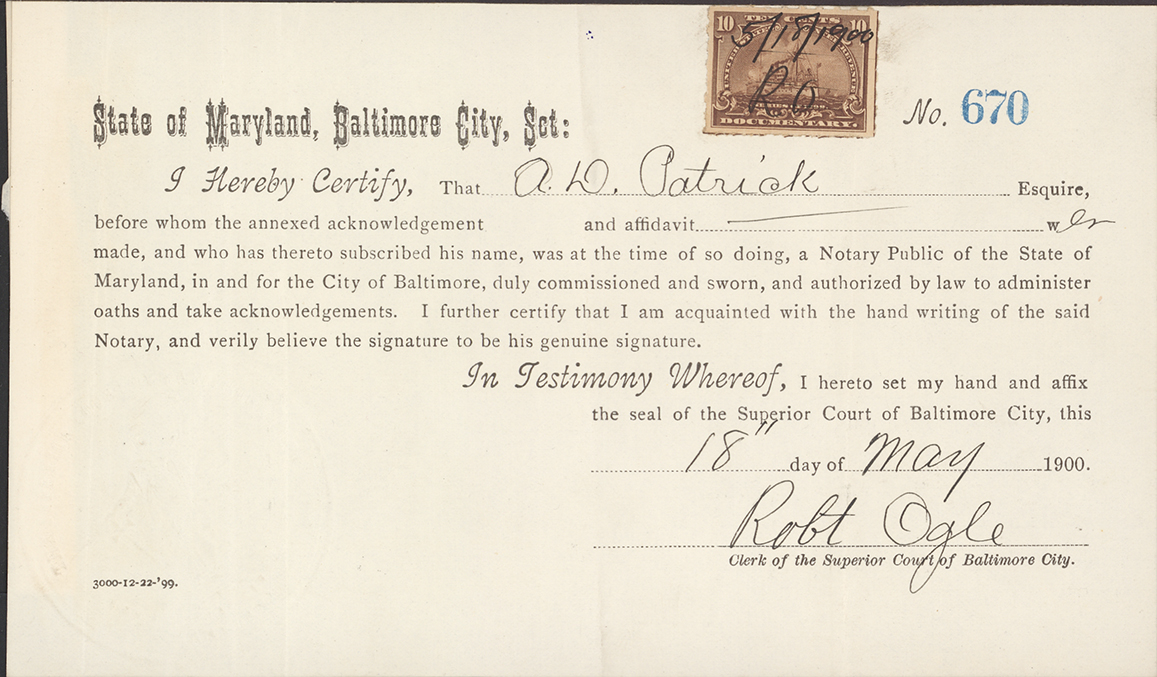 10 TEN CENTS 10
5/18/1900
R. O.
DOCUMENTARY.
No. 670
State of Maryland, Baltimore City, Sct:
I Hereby Certify, That A. D. Patrick Esquire,
before whom the annexed acknowledgement and affidavit w er
made, and who has thereto subscribed his name, was at the time of so doing, a Notary Public of the State of
Maryland, in and for the City of Baltimore, duly commissioned and sworn, and authorized by law to administer
oaths and take acknowledgements. I further certify that I am acquainted with the hand writing of the said
Notary, and verily believe the signature to be his genuine signature.
In Testimony Whereof, I hereto set my hand and affix
the seal of the Superior Court of Baltimore City, this
18" day of May 1900.
Robt Ogle
Clerk of the Superior Court of Baltimore City.
3000-12-22-'99.